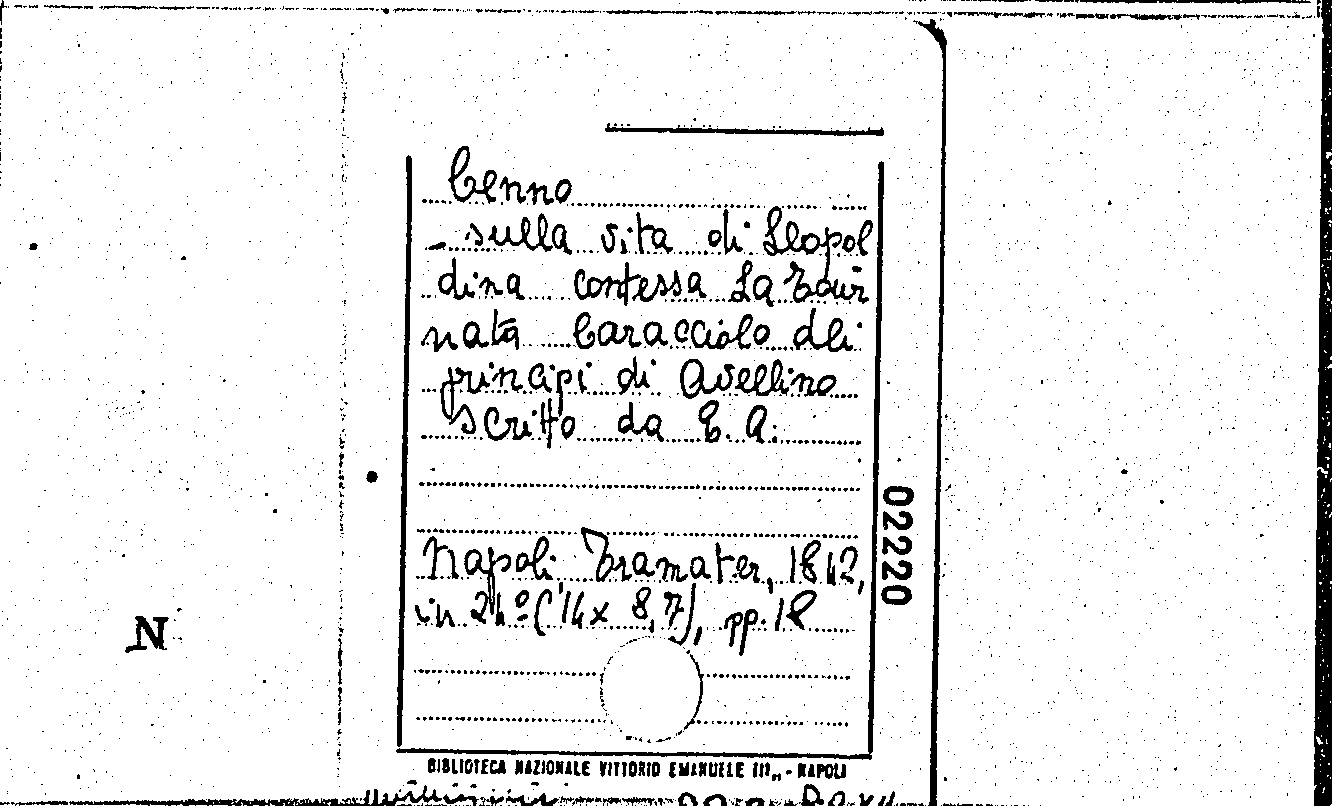 Cenno
sulla vita di Leopol
dina contessa La Tour
nata Caracciolo dei
principi di Avellino
scritto da E. A.
Napoli, Tramater, 1842,
in 24º (14 x 8,7), pp. 18
02220
N
BIBLIOTECA NAZIONALE VITTORIO EMANUELE III„ - NAPOLI